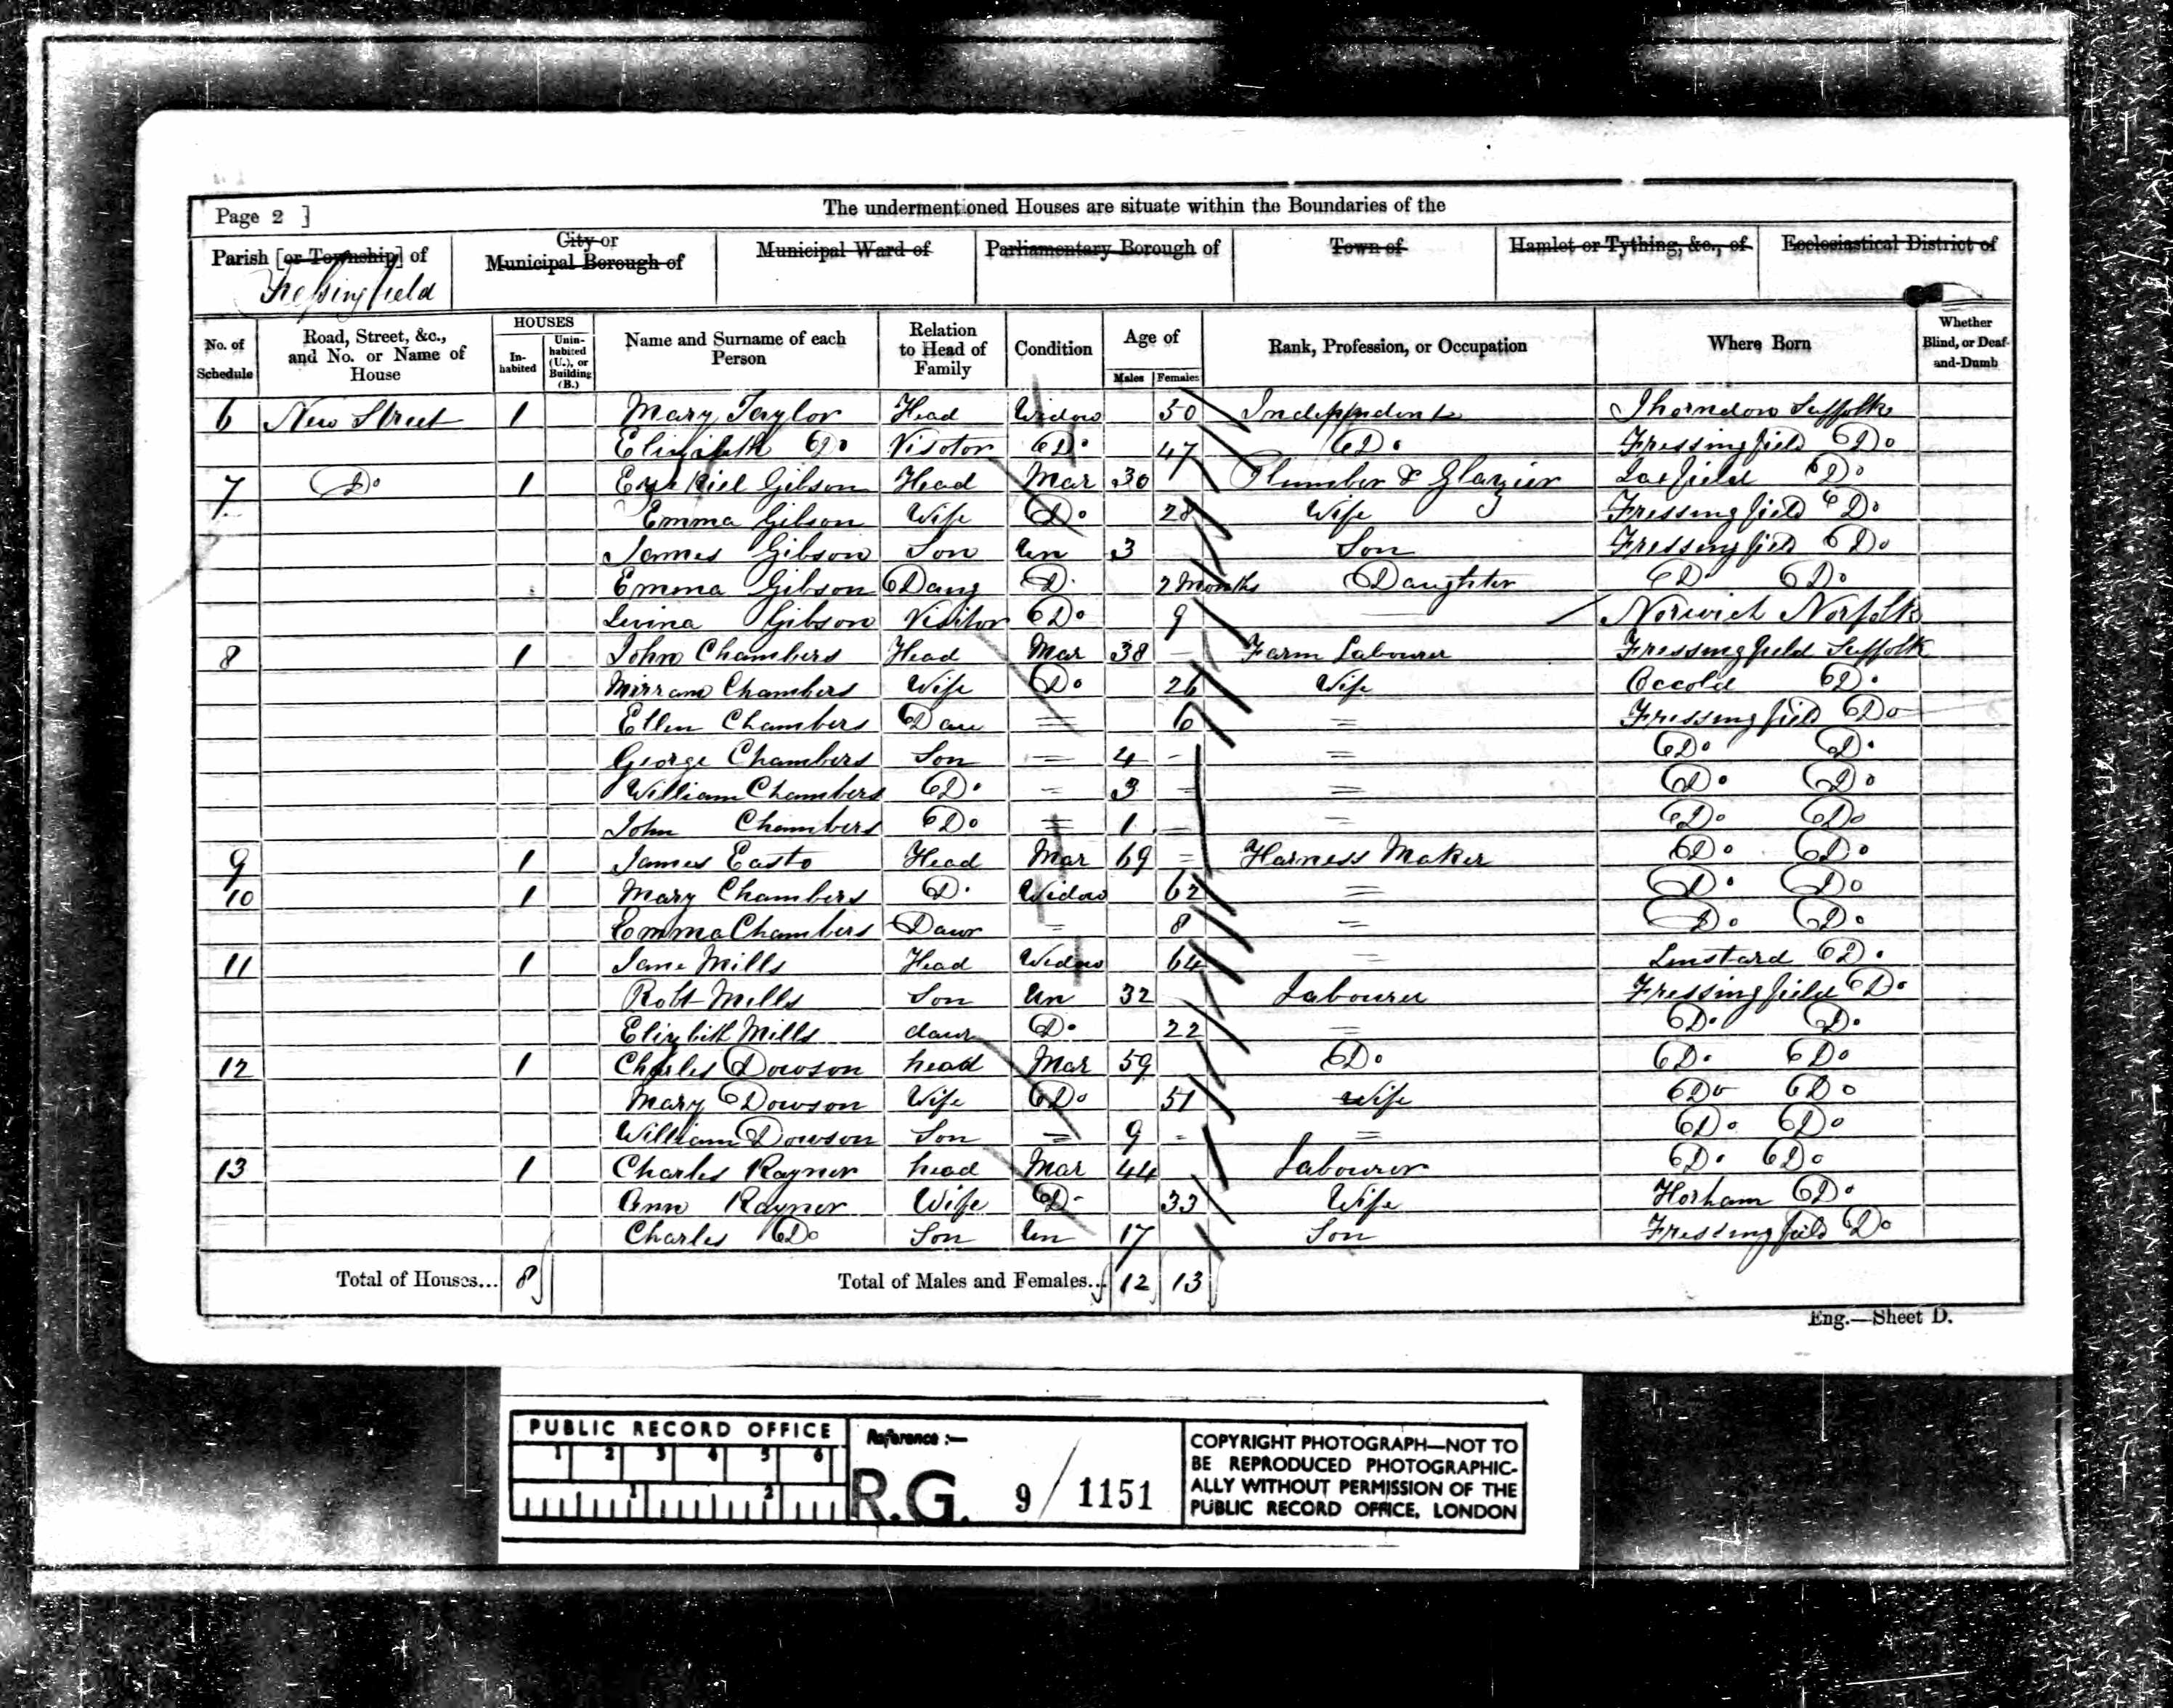 Page 2 ]
The undermentioned Houses are situate within the Boundaries of the
Parish [or Township] of Fressingfield
City or Municipal Borough of
Municipal Ward of
Parliamentary Borough of
Town of
Hamlet or Tything, &c., of
Ecclesiastical District of
No. of Schedule
Road, Street, &c., and No. or Name of House
HOUSES
In-habited
Unin-habited (U.), or Building (B.)
Name and Surname of each Person
Relation to Head of Family
Condition
Age of
Males Females
Rank, Profession, or Occupation
Where Born
Whether Blind, or Deaf-and-Dumb
6 New Street 1 Mary Taylor Head Widow 50 Independent Thorndon Suffolk
Elizabeth Do Visitor Do 47 Do Fressingfield Do
7 Do 1 Ezekiel Gibson Head Mar 30 Plumber & Glazier Laxfield Do
Emma Gibson Wife Do 28 Wife Fressingfield Do
James Gibson Son Un 3 Son Fressingfield Do
Emma Gibson Daug D 2 Months Daughter Do Do
Livina Gibson Visitor Do 9 Norwich Norfolk
8 1 John Chambers Head Mar 38 — Farm Labourer Fressingfield Suffolk
Mirram Chambers Wife Do 26 Wife Occold Do
Ellen Chambers Dau = 6 = Fressingfield Do
George Chambers Son = 4 - = Do Do
William Chambers Do = 3 = = Do Do
John Chambers Do = 1 — = Do Do
9 1 James Easto Head Mar 69 = Harness Maker Do Do
10 1 Mary Chambers D. Widow 62 = Do Do
Emma Chambers Daur = 8 = Do Do
11 1 Jane Mills Head Widow 64 = Linstard Do
Robt Mills Son Un 32 Labourer Fressingfield Do
Elizbith Mills daur Do 22 = Do Do
12 1 Charles Dowson head Mar 59 Do Do Do
Mary Dowson Wife Do 51 Wife Do Do
William Dowson Son = 9 - = Do Do
13 1 Charles Rayner head Mar 44 Labourer Do Do
Ann Rayner Wife Do 33 Wife Horham Do
Charles Do Son Un 17 Son Fressingfield Do
Total of Houses... 8
Total of Males and Females... 12 13
Eng.—Sheet D.
PUBLIC RECORD OFFICE
1 2 3 4 5 6
1 2
Reference :—
R.G. 9 / 1151
COPYRIGHT PHOTOGRAPH—NOT TO
BE REPRODUCED PHOTOGRAPHIC-
ALLY WITHOUT PERMISSION OF THE
PUBLIC RECORD OFFICE, LONDON